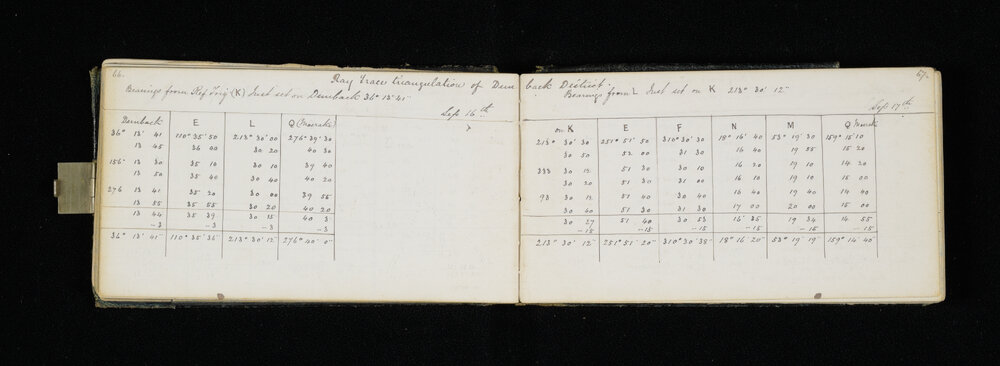 66.
67.
Ray Trace triangulation of Dernback District
Bearings from Ref Trig (K) Inst set on Dernback 36° 13' 41"
Sept 16th
Dernback E L Q (Moeraki)
36° 13' 41 110° 35' 50 213° 30' 00 276° 39' 30
13 45 36 00 30 20 40 30
156° 13 30 35 10 30 10 39 40
13 50 35 40 30 40 40 20
276 13 41 35 20 30 00 39 55
13 55 35 55 30 20 40 20
13 44 35 39 30 15 40 3
-3 -3 -3 -3
36° 13' 41" 110° 35' 36" 213° 30' 12" 276° 40' 0"
Bearings from L Inst set on K 213° 30' 12"
Sept 17th
on K E F N M Q Moeraki
213° 30' 30 251° 51' 50 310° 30' 30 18° 16' 40 53° 19' 30 159° 15' 10
30 50 52 00 31 30 16 40 19 55 15 20
333 30 12 51 30 30 10 16 20 19 10 14 20
30 20 51 30 31 00 16 10 19 10 15 00
93 30 12 51 40 30 40 16 40 19 40 14 40
30 40 51 30 31 30 17 00 20 00 15 00
30 27 51 40 30 53 16 35 19 34 14 55
-15 -15 -15 -15 -15 -15
213° 30' 12" 251° 51' 20" 310° 30' 38" 18° 16' 20" 53° 19' 19" 159° 14' 40"